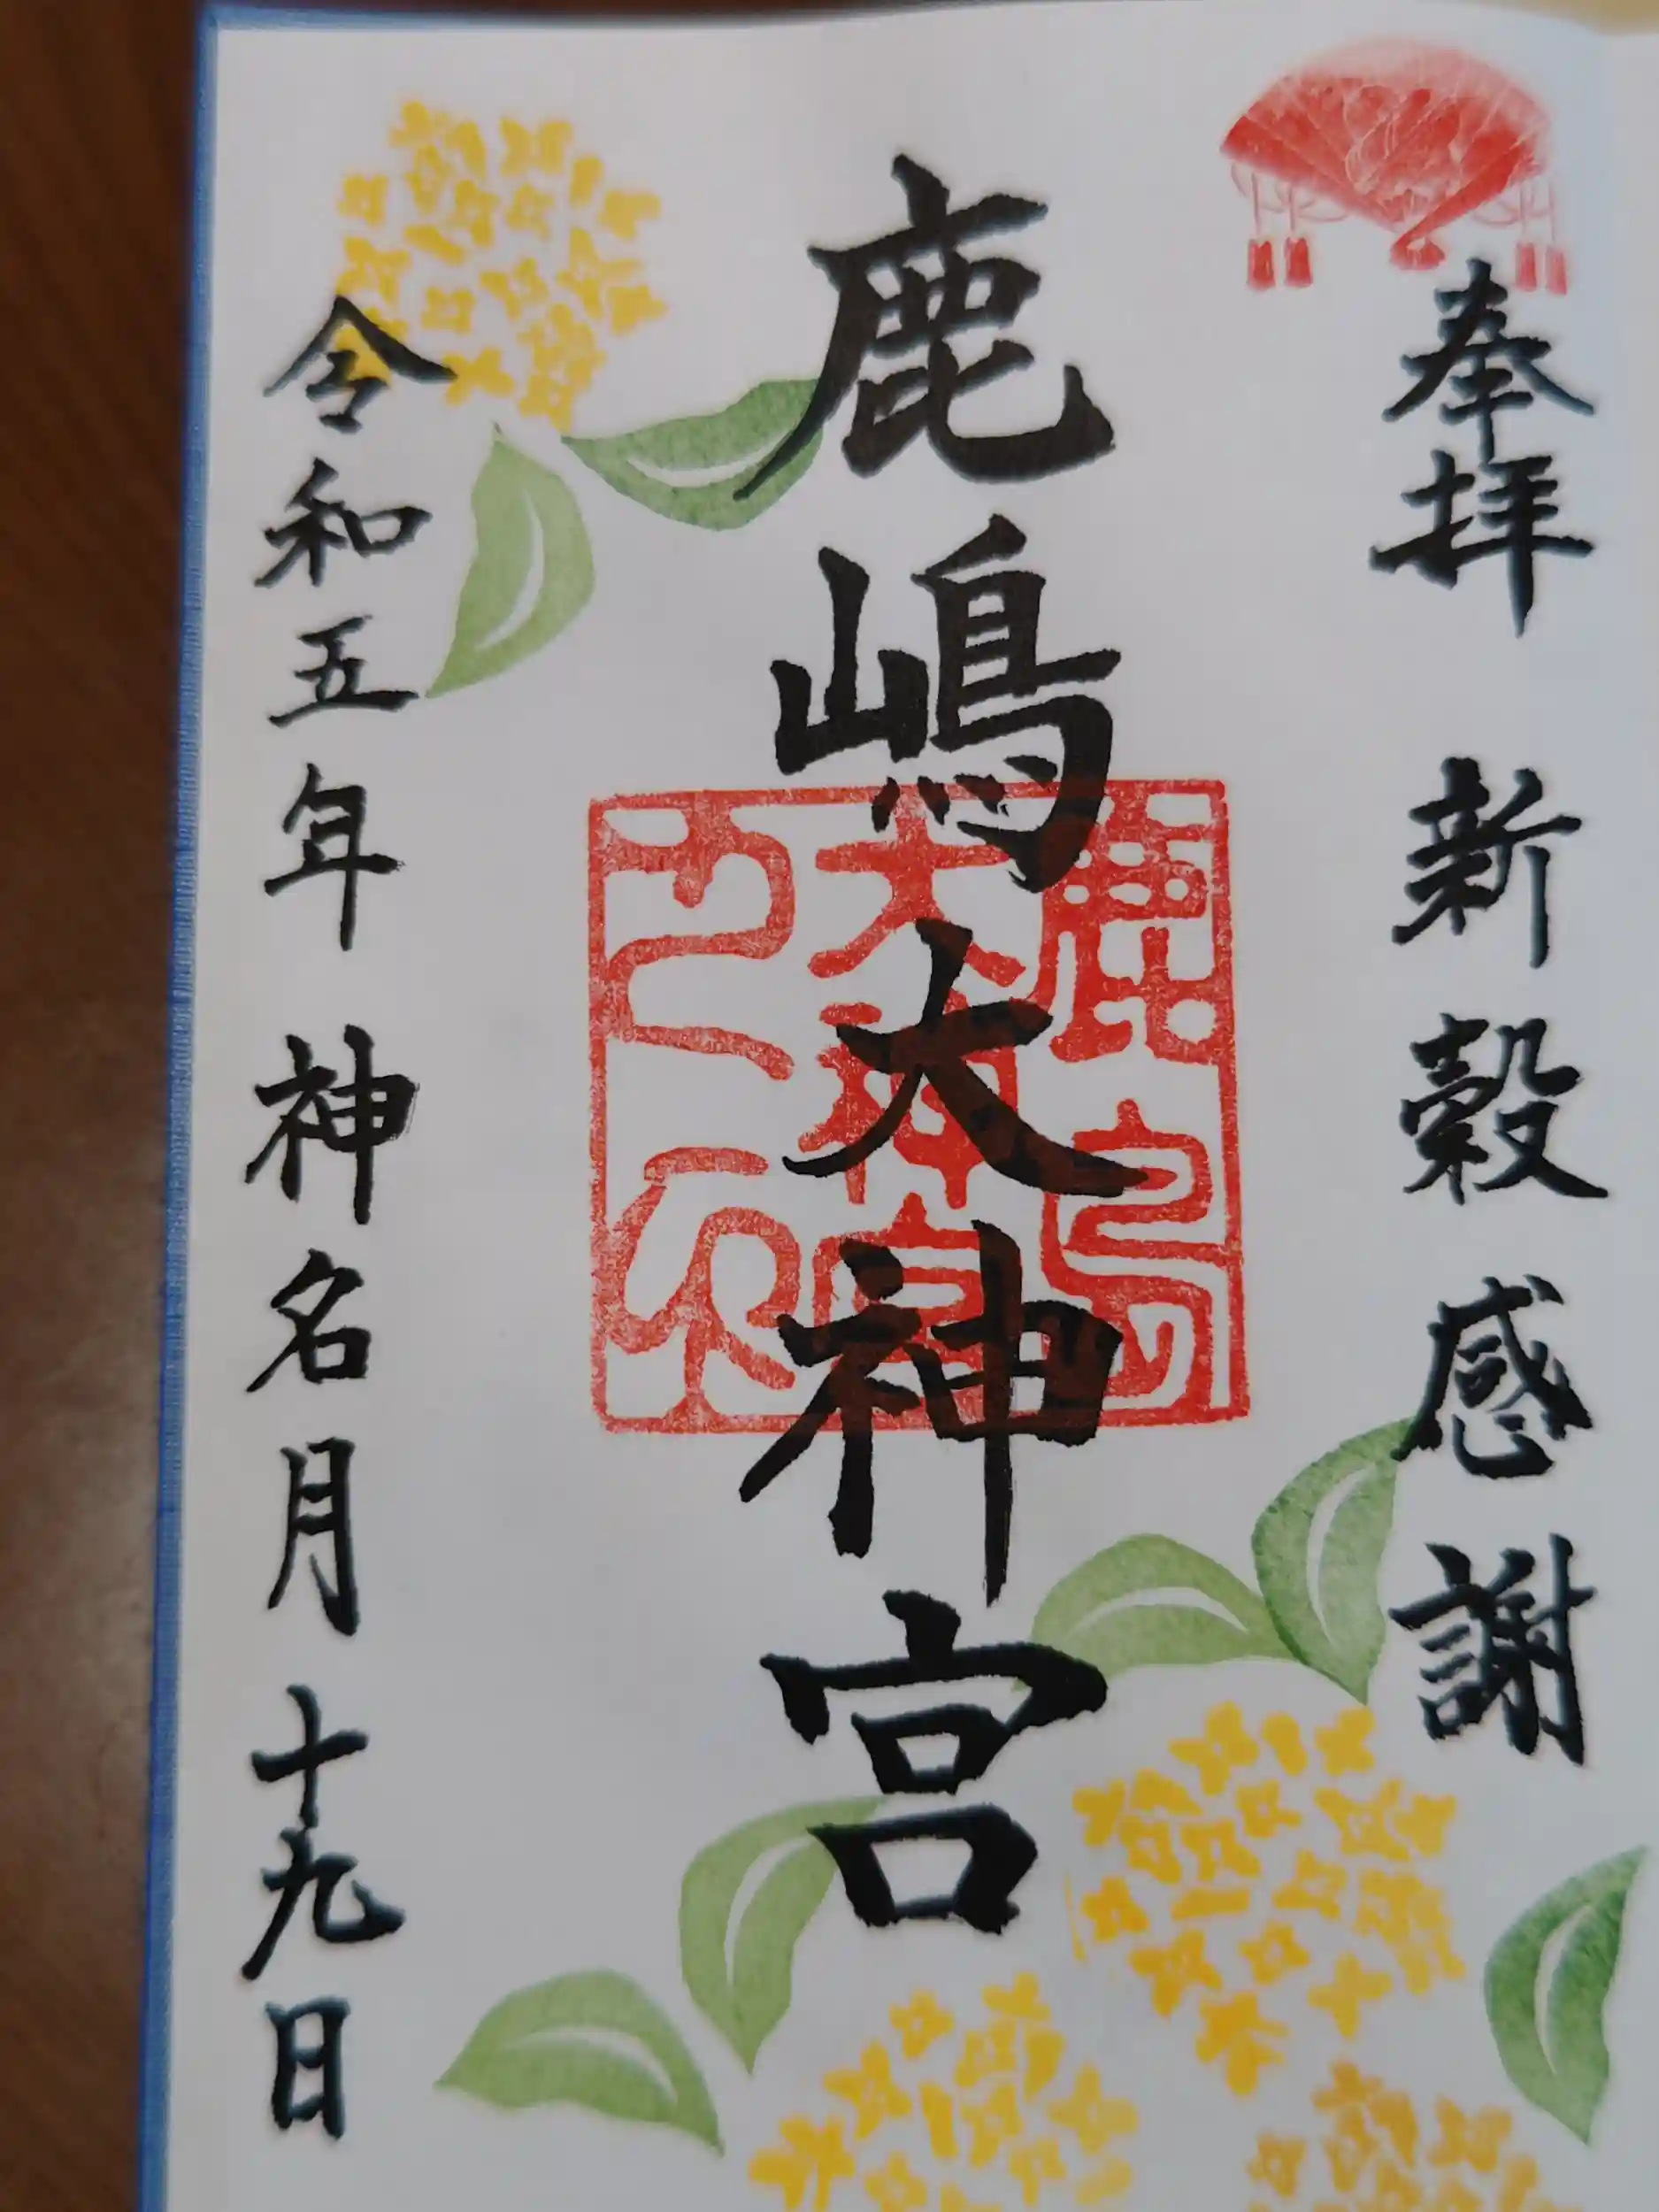 奉拝 新穀感謝
鹿嶋大神宮
鹿島大神宮
令和五年 神名月 十九日